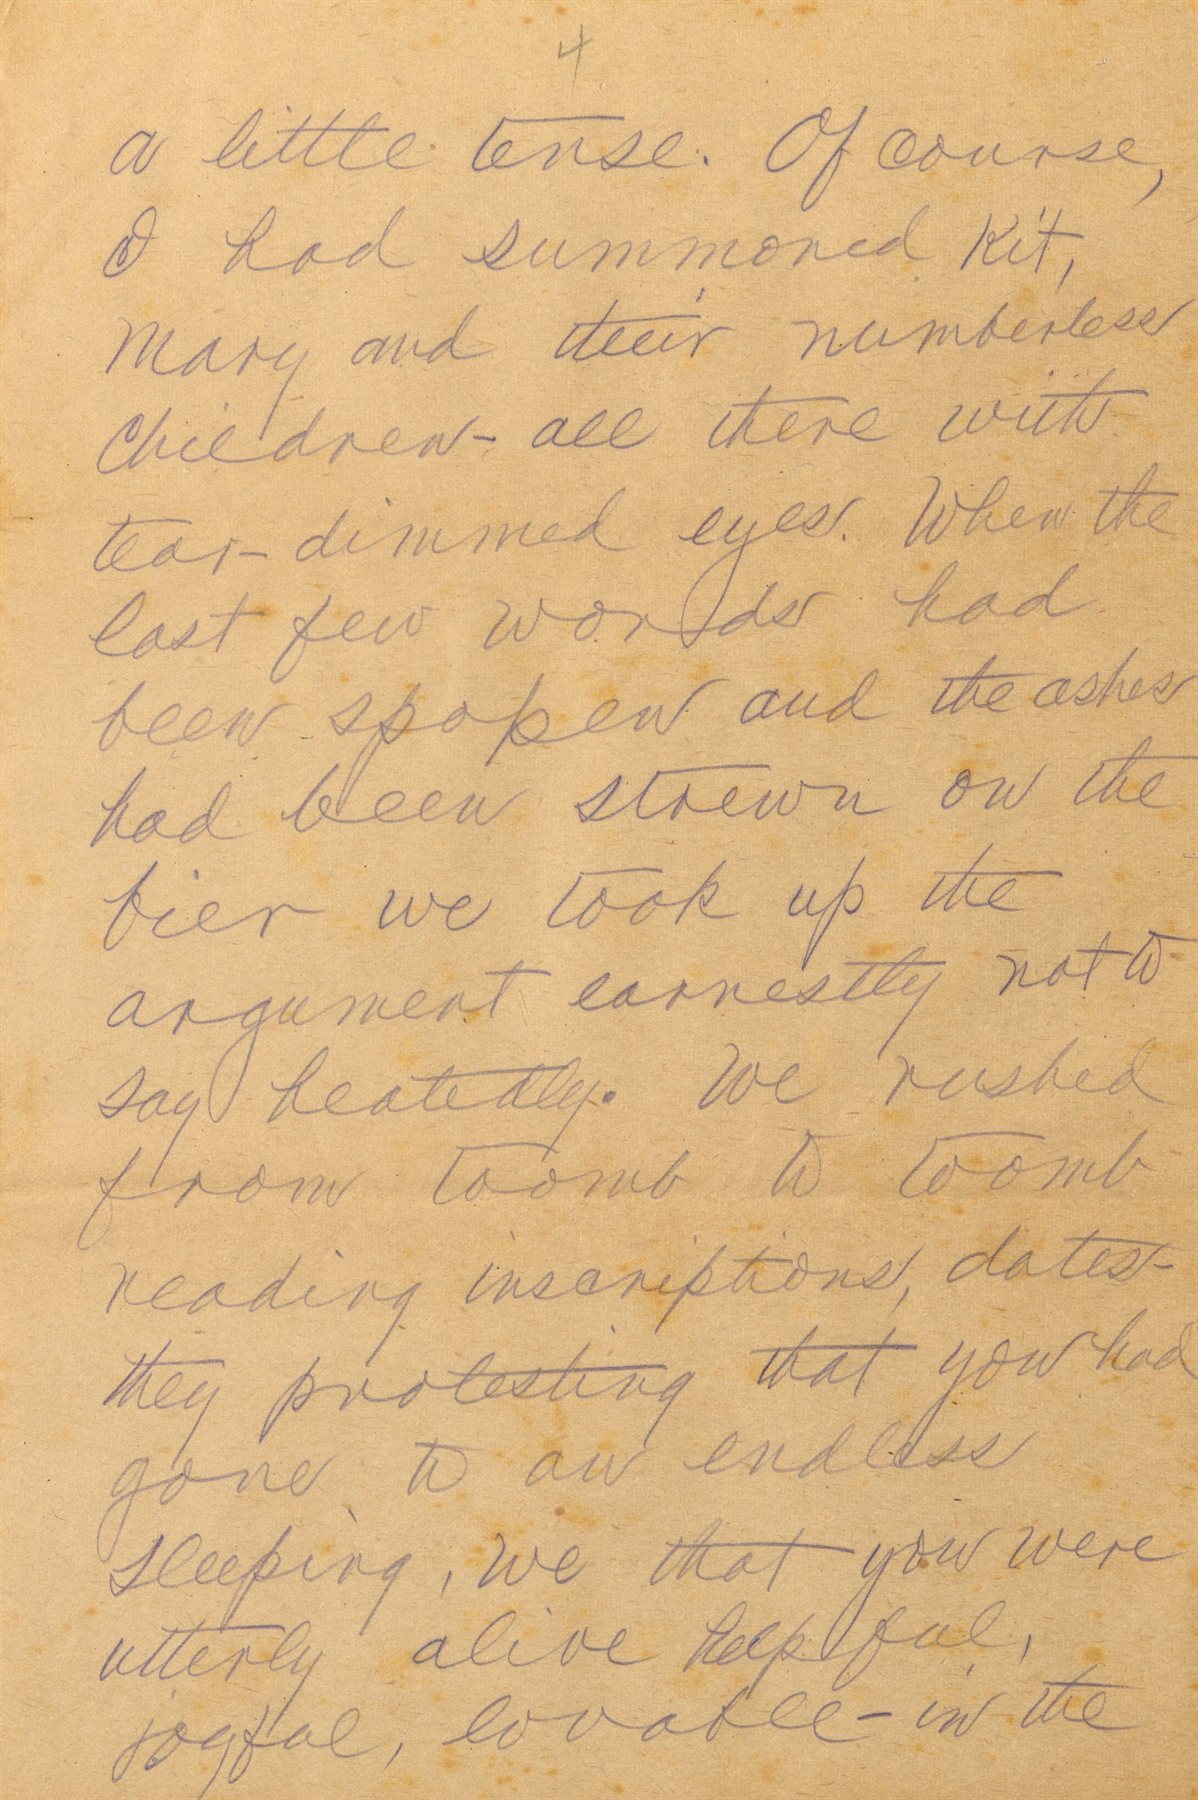 4
a little tense. Of course,
I had summoned Kit,
Mary and their numberless
children - all there with
tear-dimmed eyes. When the
last few words had
been spopen and the ashes
had been strewn on the
bier we took up the
argument earnestly not to
say heatedly. We rushed
from toomb to toomb
reading inscriptions, dates -
they protesting that you had
gone to an endless
sleeping, we that you were
utterly alive helpful,
joyful, lovable - in the